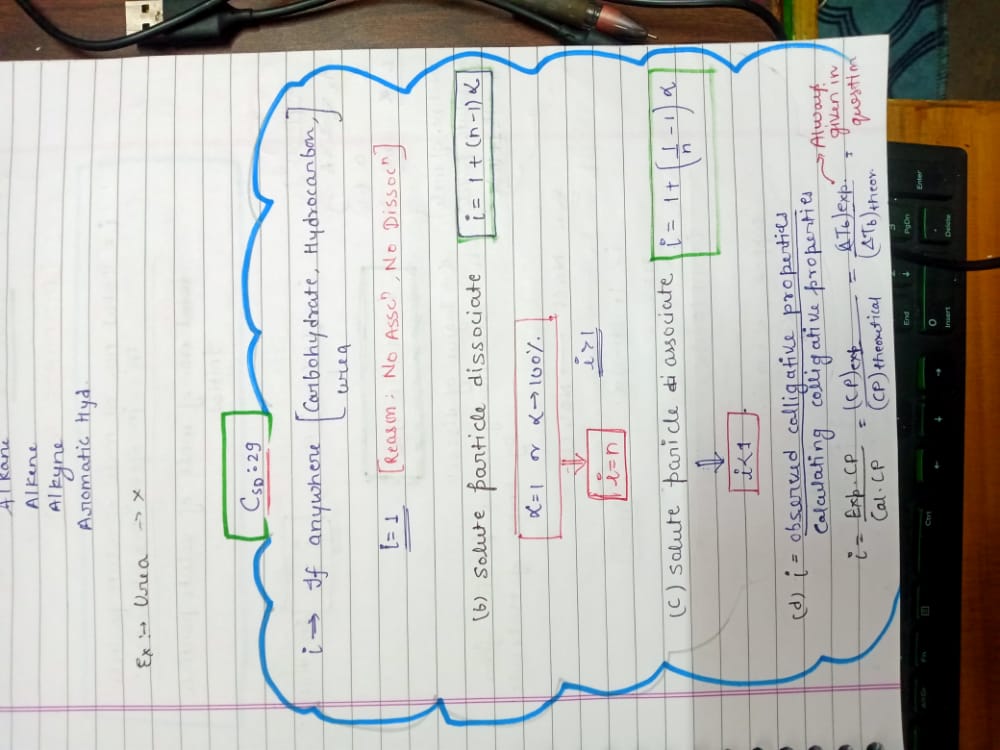 Alkane
Alkene
Alkyne
Aromatic Hyd
Ex :→ Urea → x
C_SD : 29
i → If anywhere [Carbohydrate, Hydrocarbon,
urea]
i = 1 [Reason: No Asscⁿ, No Dissocⁿ]
(b) solute particle dissociate i = 1 + (n-1) α
α=1 or α → 100%.
⇒ ⇒
i=n i>1
(c) solute particle diassociate i = 1 + (1/n - 1) α
⇒
i<1
(d) i = observed calligative properties
Calculating colligative properties
→ Always
given in
question
i = Exp. CP / Cal. CP = (CP)exp / (CP)theoretical = (ΔTb)exp. / (ΔTb)theor.
Enter
PgDn
Delete
End
Insert
Ctrl
Fn